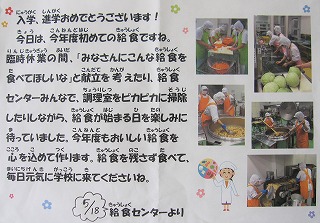 入学、進学おめでとうございます!
今日は、今年度初めての給食ですね。
臨時休業の間、「みなさんにこんな給食を
食べてほしいな」と献立を考えたり、給食
センターみんなで、調理室をピカピカに掃除
したりしながら、給食が始まる日を楽しみに
待っていました。今年度もおいしい給食を
心を込めて作ります。給食を残さず食べて、
毎日元気に学校に来てくださいね。
5/18 給食センターより